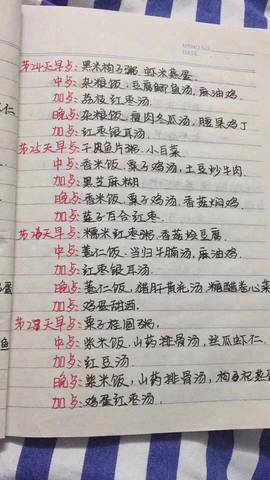 第24天早点：黑米枸子粥 虾米蒸蛋
中点：杂粮饭，豆腐鲫鱼汤，麻油鸡
加点：荔枝红枣汤
晚点：杂粮饭，瘦肉冬瓜汤，腰果鸡丁
加点：红枣银耳汤
第25天早点：牛肉鱼片粥，小白菜
中点：香米饭，栗子鸡汤，土豆炒牛肉
加点：黑芝麻糊
晚点：香米饭，栗子鸡汤，香菇焖鸡
加点：莲子百合红枣
第26天早点：糯米红枣粥，香菇烩豆腐
中点：薏仁饭，当归牛腩汤，麻油鸡
加点：红枣银耳汤
晚点：薏仁饭，猪肝黄花汤，糖醋卷心菜
加点：鸡蛋甜酒
第27天早点：栗子桂圆粥
中点：紫米饭，山药排骨汤，丝瓜虾仁
加点：红豆汤
晚点：紫米饭，山药排骨汤，枸杞
加点：鸡蛋红枣汤